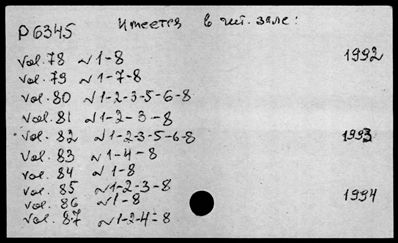 P6345 Имеется в чит. зале:
vol. 78 N 1-8 1992
vol. 79 N 1-7-8
vol. 80 N 1-2-3-5-6-8
vol. 81 N 1-2-3-8
vol. 82 N 1-2-3-5-6-8 1993
vol. 83 N 1-4-8
vol. 84 N 1-8
vol. 85 N 1-2-3-8
vol. 86 N 1-8 1994
vol. 87 N 1-2-4-8